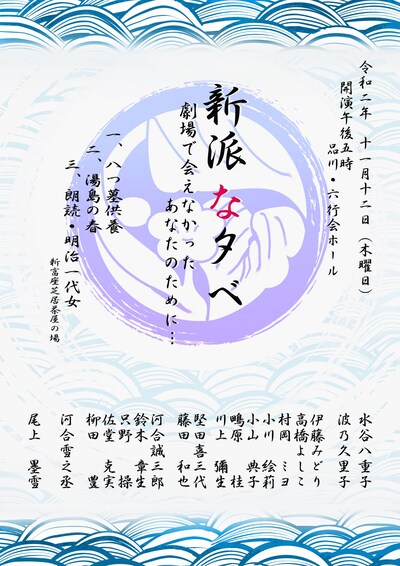 令和二年 十一月十二日（木曜日）
開演午後五時
品川・六行会ホール
新派な夕べ
劇場で会えなかった
あなたのために…
一、八つ墓供養
二、湯島の春
三、朗読・明治一代女
新富座芝居茶屋の場
水谷八重子
波乃久里子
伊藤みどり
高橋よしこ
村岡ミヨ
小川絵莉
小山典子
鴫原桂
川上彌生
堅田喜三代
藤田和也
河合誠三郎
鈴木章生
只野操
佐堂克実
柳田豊
河合雪之丞
尾上墨雪